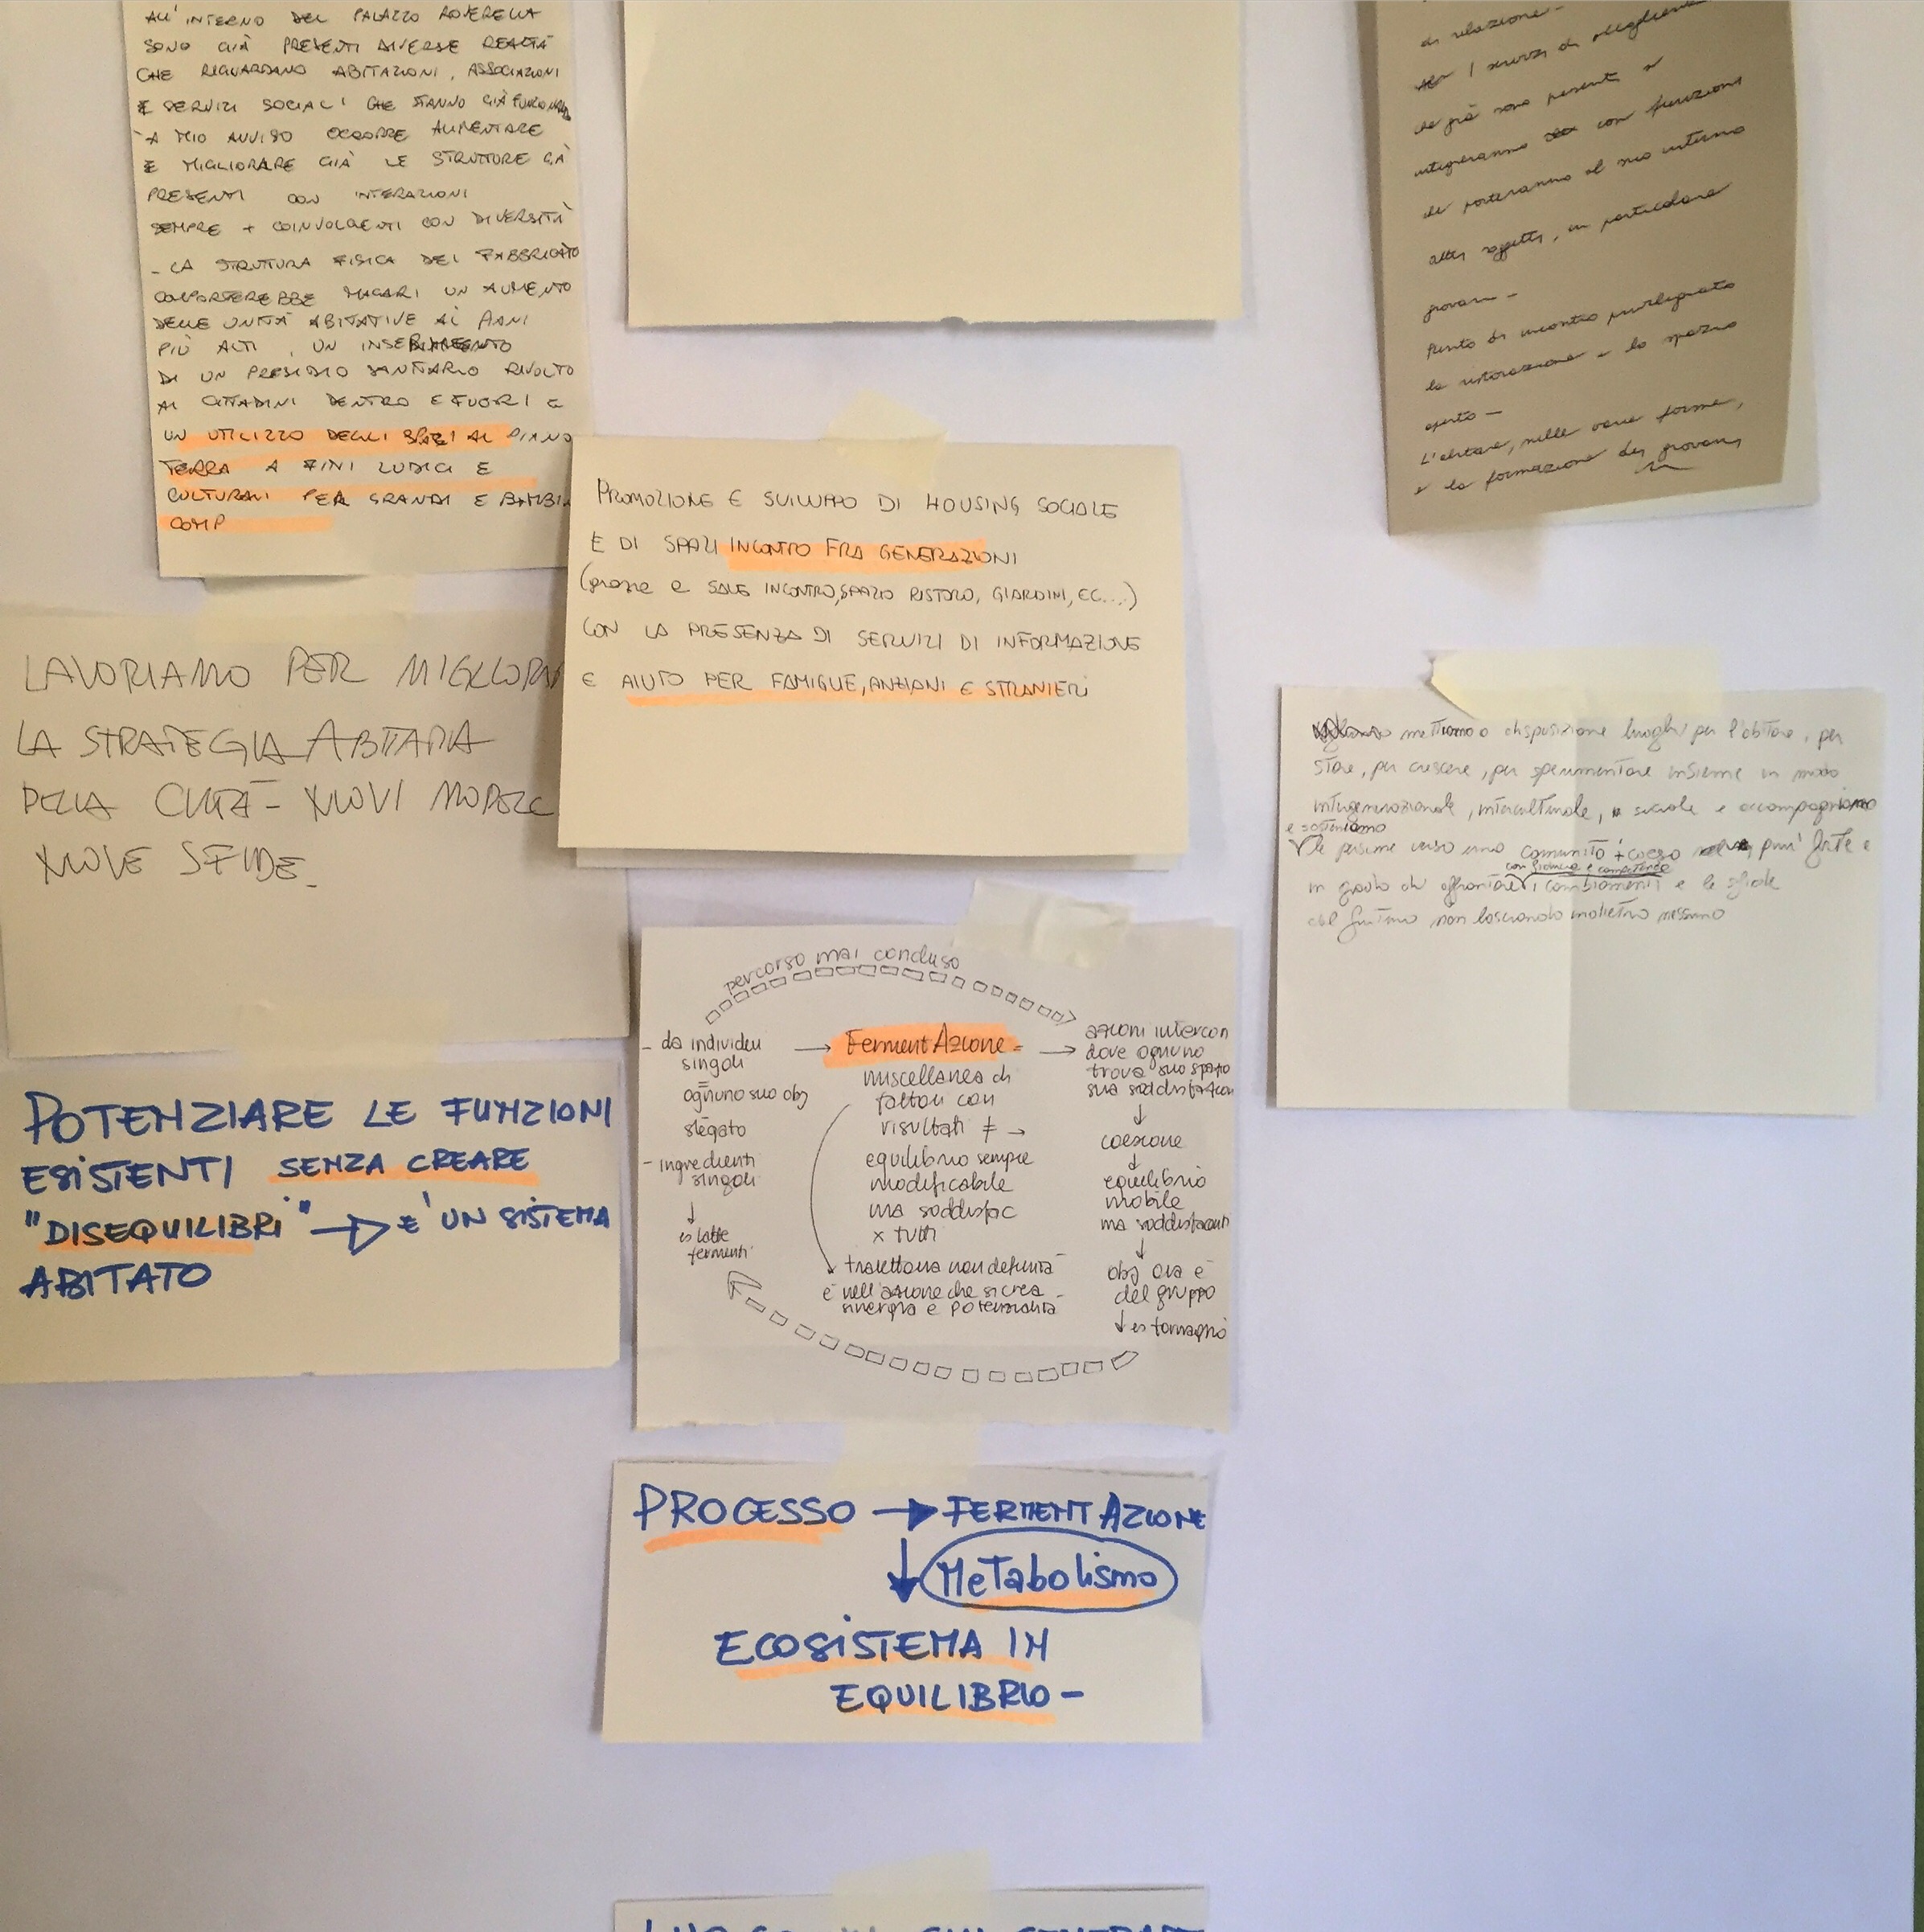 ALL'INTERNO DEL PALAZZO ROVERELLA
SONO GIÀ PRESENTI DIVERSE REALTÀ
CHE RIGUARDANO ABITAZIONI, ASSOCIAZIONI
E SERVIZI SOCIALI CHE STANNO GIÀ
A MIO AVVISO OCCORRE AUMENTARE
E MIGLIORARE GIÀ LE STRUTTURE GIÀ
PRESENTI CON INTERAZIONI
SEMPRE + COINVOLGENTI CON DIVERSITÀ
- LA STRUTTURA FISICA DEL FABBRICATO
COMPORTEREBBE MAGARI UN AUMENTO
DELLE UNITÀ ABITATIVE AI PIANI
PIÙ ALTI, UN
DI UN PRESIDIO SANITARIO RIVOLTO
AI CITTADINI DENTRO E FUORI E
UN UTILIZZO DEGLI SPAZI AL PIANO
TERRA A FINI LUDICI E
CULTURALI PER GRANDI E BAMBI
COMP
LAVORIAMO PER MIGLIORA
LA STRATEGIA ABITATIVA
DELLA CITTÀ - NUOVI MODELL
NUOVE SFIDE.
POTENZIARE LE FUNZIONI
ESISTENTI SENZA CREARE
"DISEQUILIBRI" → E' UN SISTEMA
ABITATO
PROMOZIONE E SVILUPPO DI HOUSING SOCIALE
E DI SPAZI INCONTRO FRA GENERAZIONI
(piazze e SALE INCONTRO, SPAZIO RISTORO, GIARDINI, EC....)
CON LA PRESENZA DI SERVIZI DI INFORMAZIONE
E AIUTO PER FAMIGLIE, ANZIANI E STRANIERI
percorso mai concluso
- da individui
singoli
=
ognuno suo obj
slegato
- ingredienti
singoli
↓
es latte
fermenti
→ FermentAzione = →
miscellanea di
fattori con
risultati ≠ →
equilibrio sempre
modificabile
ma soddisfac
x tutti
traiettoria non definita
è nell'azione che si crea
sinergia e potenzialità
azioni intercon
dove ognuno
trova suo spazio
sua soddisfazion
↓
coesione
↓
equilibrio
mobile
ma soddisfacenti
↓
obj ora è
del gruppo
↓ es formaggio
PROCESSO → FERMENTAZIONE
↓ Metabolismo
ECOSISTEMA IN
EQUILIBRIO -
di relazione -
I servizi di
che già sono presenti si
integreranno con funzioni
che porteranno al suo interno
altri soggetti, in particolare
giovani -
Punto di incontro privilegiato
la ristorazione e lo spazio
aperto -
L'abitare, nelle varie forme,
e la formazione dei giovani
mettiamo a disposizione luoghi per l'abitare, per
stare, per crescere, per sperimentare insieme in modo
intergenerazionale, interculturale, sociale e accompagniamo
e sosteniamo
le persone verso una comunità + coesa più forte e
con fiducia e competenze
in grado di affrontare i cambiamenti e le sfide
del futuro non lasciando indietro nessuno